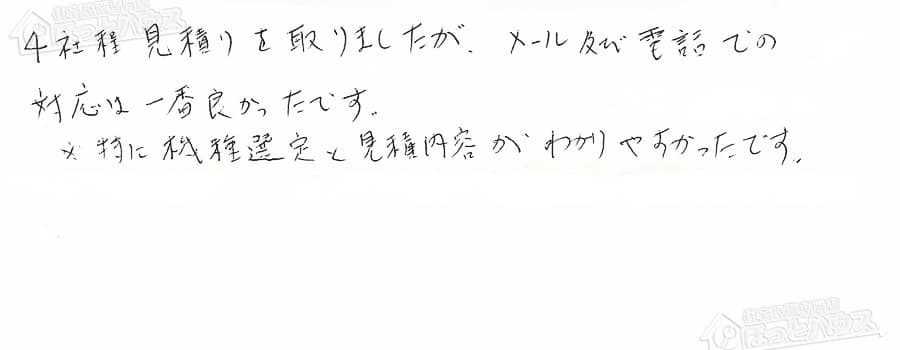 4社程見積りを取りましたが、メール及び電話での
対応は一番良かったです。
※特に機種選定と見積内容がわかりやすかったです。
住宅設備専門店
ほっとハウス
住宅設備専門店
ほっとハウス